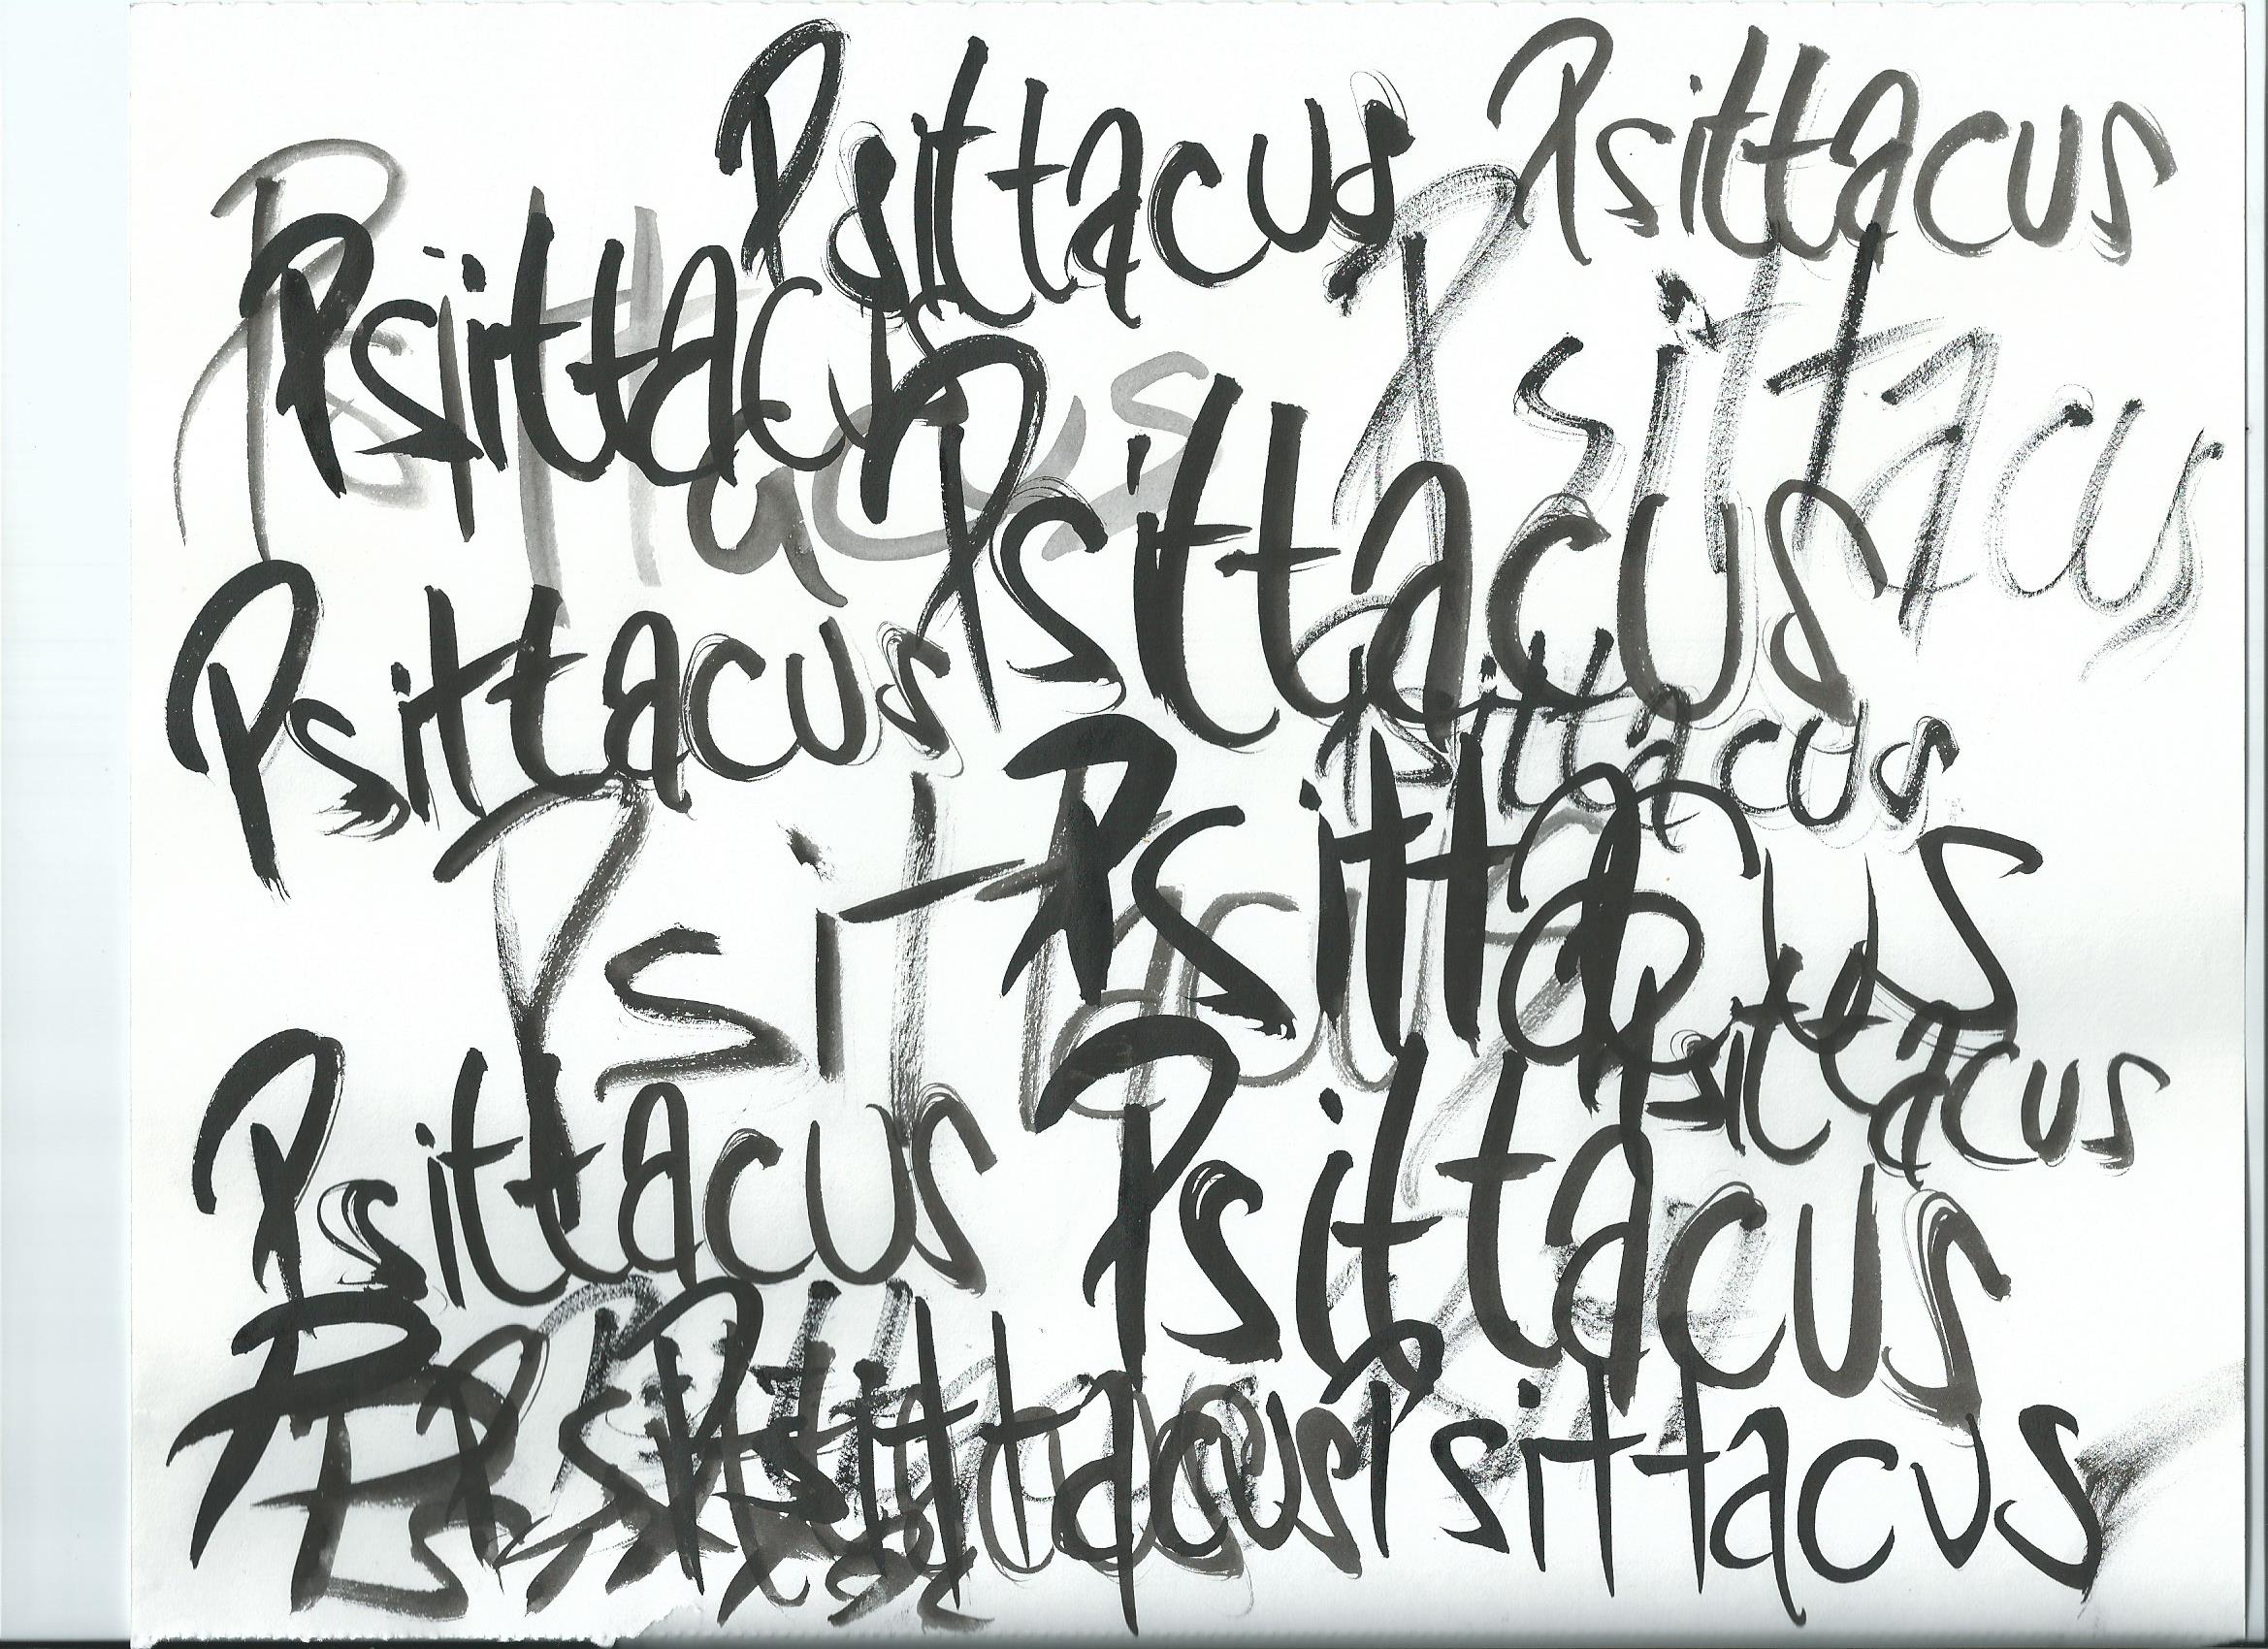 Psittacus Psittacus
Psittacus
Psittacus
Psittacus
Psittacus
Psittacus
Psittacus
Psittacus
Psittacus
Psittacus
Psittacus
Psittacus
Psittacus
Psittacus Psittacus